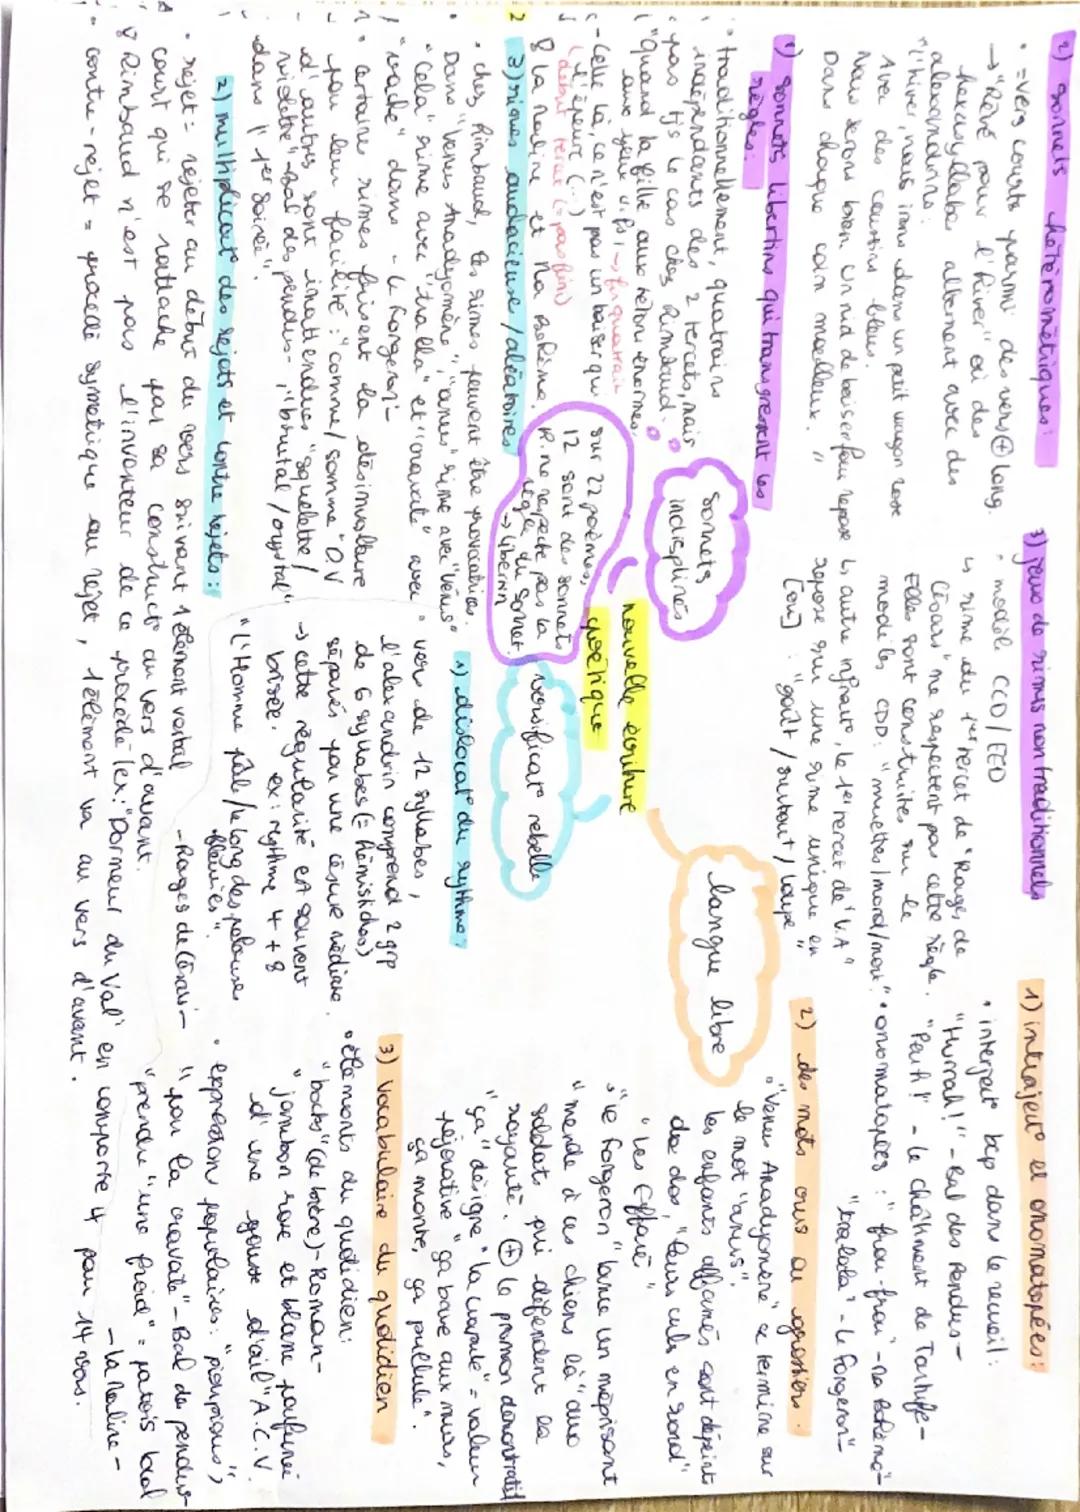 nouvelle écriture
poétique
sonnets
indisciplinés
sur 22 poèmes,
12 sont des sonnets
R. ne respecte pas la
règle du sonnet.
→ libertin
1) sonnets libertins qui transgressent les
règles:
• traditionnellement, quatrains
indépendants des 2 tercets, mais
pas tjs le cas chez Rimbaud.
"quand la fille aux tétons énormes,
aux yeux vifs, → fin quatrain
- Celle là, ce n'est pas un baiser qui
l'épeure (...)
(début tercet (= pas fini)
& La Maline et Ma Bohème.
2) sonnets hétérométriques:
• = vers courts parmi des vers ⊕ long.
→ "Rêvé pour l'hiver" où des
hexasyllabe alternent avec des
alexandrins:
"l'hiver, nous irons dans un petit wagon rose
Avec des coussins bleus.
Nous serons bien. Un nid de baisers fous repose
Dans chaque coin moelleux. "
3) jeux de rimes non traditionnels
• modèle CCD/EED
↳ rime du 1er tercet de "Rages de
Césars" ne respectent pas cette règle.
Elles sont construites sur le
modèles CDD: "muettes/mord/mort."
↳ autre infract°, le 1er tercet de "V.A"
repose sur une rime unique en
[ou] : "goût / surtout / loupe "
langue libre
1) interject° et onomatopées:
• interject° bcp dans le recueil:
"Hurrah!" - Bal des Pendus -
"Peuh!" - le châtiment de Tartufe -
• onomatopées : "frou-frou" - ma Bohème -
"tralala" - le forgeron -
2) des mots crus ou grossiers.
• "Venus Anadyomène" se termine sur
le mot "anus".
les enfants affamés sont dépeint
de dos, "leurs culs en rond"
"Les Effarés"
• "le Forgeron" lance un méprisant
"merde à ces chiens là" aux
soldats qui défendent la
royauté. ⊕ le pronom démonstratif
"ça" désigne "la crapule" = valeur
péjorative "ça bave aux murs,
ça monte, ça pullule".
3) vocabulaire du quotidien
• éléments du quotidien:
"bocks" (de bière) - Roman -
"jambon rose et blanc parfumé
d'une gousse d'ail" A.C.V.
• expression populaires: "pioupious",
" pou la cravate" - Bal des pendus
"prendre" une froid" = patois local
- La Maline -
versificat° rebelle
1) dislocat° du rythme:
• vers de 12 syllabes,
l'alexandrin comprend 2 grp
de 6 syllabes (= hémistiches)
séparés par une césure médiane.
→ cette régularité est souvent
brisée. ex: rythme 4 + 8
"L'Homme pâle / le long des pelouses
fleuries".
- Rages de Césars -
2) multiplicat° des rejets et contre rejets:
• rejet = rejeter au début du vers suivant 1 élément verbal
court qui se rattache par sa construct° au vers d'avant.
& Rimbaud n'est pas l'inventeur de ce procédé (ex: "Dormeur du Val" en comporte 4 pour 14 vers.
• contre-rejet = procédé symétrique au rejet, 1 élément va au vers d'avant.
3) rimes audacieuse / aléatoires
• chez Rimbaud, les rimes peuvent être provocatrices.
Dans "Venus Anadyomène", "anus" rime avec "Vénus"
"Cela" rime avec "tralla" et "cravate" avec
"vache" dans - le Forgeron -
• certaines rimes frisent la désinvolture
par leur facilité : "comme / somme" D.V
d'autres sont inattendues "squelette /
violette" - bal des pendus -, "brutal / crystal"
dans "1er soirée".